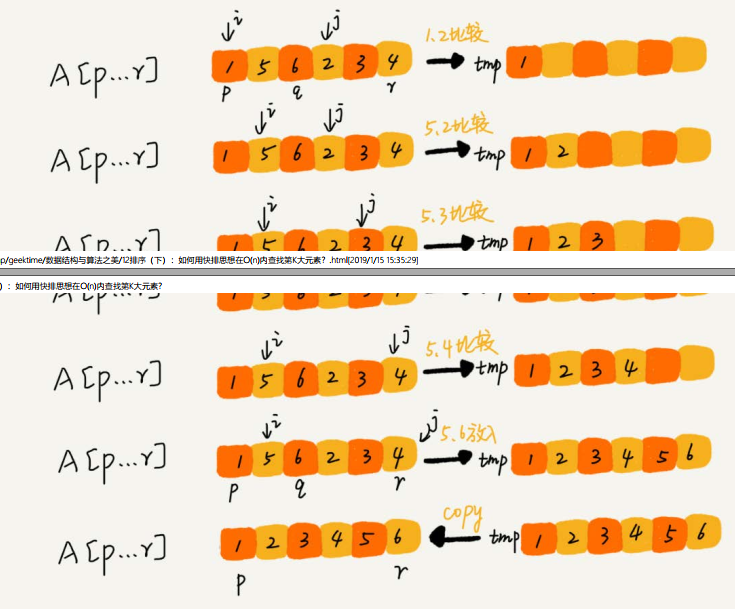 i j 1.2比较
A[p...r] 1 5 6 2 3 4 tmp 1
p q r
i j 5.2比较
A[p...r] 1 5 6 2 3 4 tmp 1 2
i j 5.3比较
A[p...r] 1 5 6 2 3 4 tmp 1 2 3
p/geektime/数据结构与算法之美/12排序（下）：如何用快排思想在O(n)内查找第K大元素？.html[2019/1/15 15:35:29]
）：如何用快排思想在O(n)内查找第K大元素？
i j 5.4比较
A[p...r] 1 5 6 2 3 4 tmp 1 2 3 4
i j 5.6放入
A[p...r] 1 5 6 2 3 4 tmp 1 2 3 4 5 6
p q r
copy
A[p...r] 1 2 3 4 5 6 tmp 1 2 3 4 5 6
p r